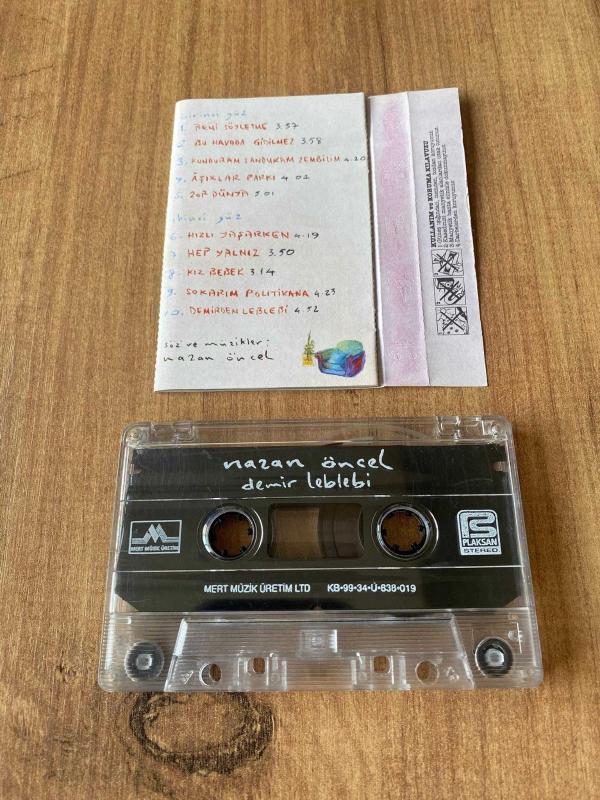 birinci yüz
1. BENİ SÖYLETME 3.57
2. BU HAVADA GİDİLMEZ 3.58
3. KUNDURAM SANDUKAM ZEMBİLİM 4.20
4. ÂŞIKLAR PARKI 4.02
5. ZOR DÜNYA 5.01
ikinci yüz
6. HIZLI YAŞARKEN 4.19
7. HEP YALNIZ 3.50
8. KIZ BEBEK 3.14
9. SOKARIM POLİTİKANA 4.23
10. DEMİRDEN LEBLEBİ 4.52
söz ve müzikler:
nazan öncel
KULLANIM ve KORUMA KILAVUZU
nazan öncel
demir leblebi
MERT MÜZİK ÜRETİM
PLAKSAN
STEREO
MERT MÜZİK ÜRETİM LTD KB-99-34-Ü-838-019